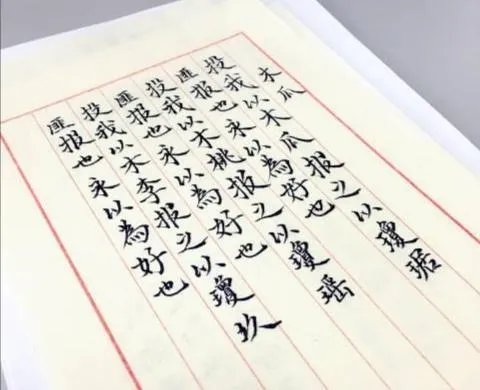 木瓜
投我以木瓜报之以瓊琚
匪报也永以為好也
投我以木桃报之以瓊瑶
匪报也永以為好也
投我以木李报之以瓊玖
匪报也永以為好也